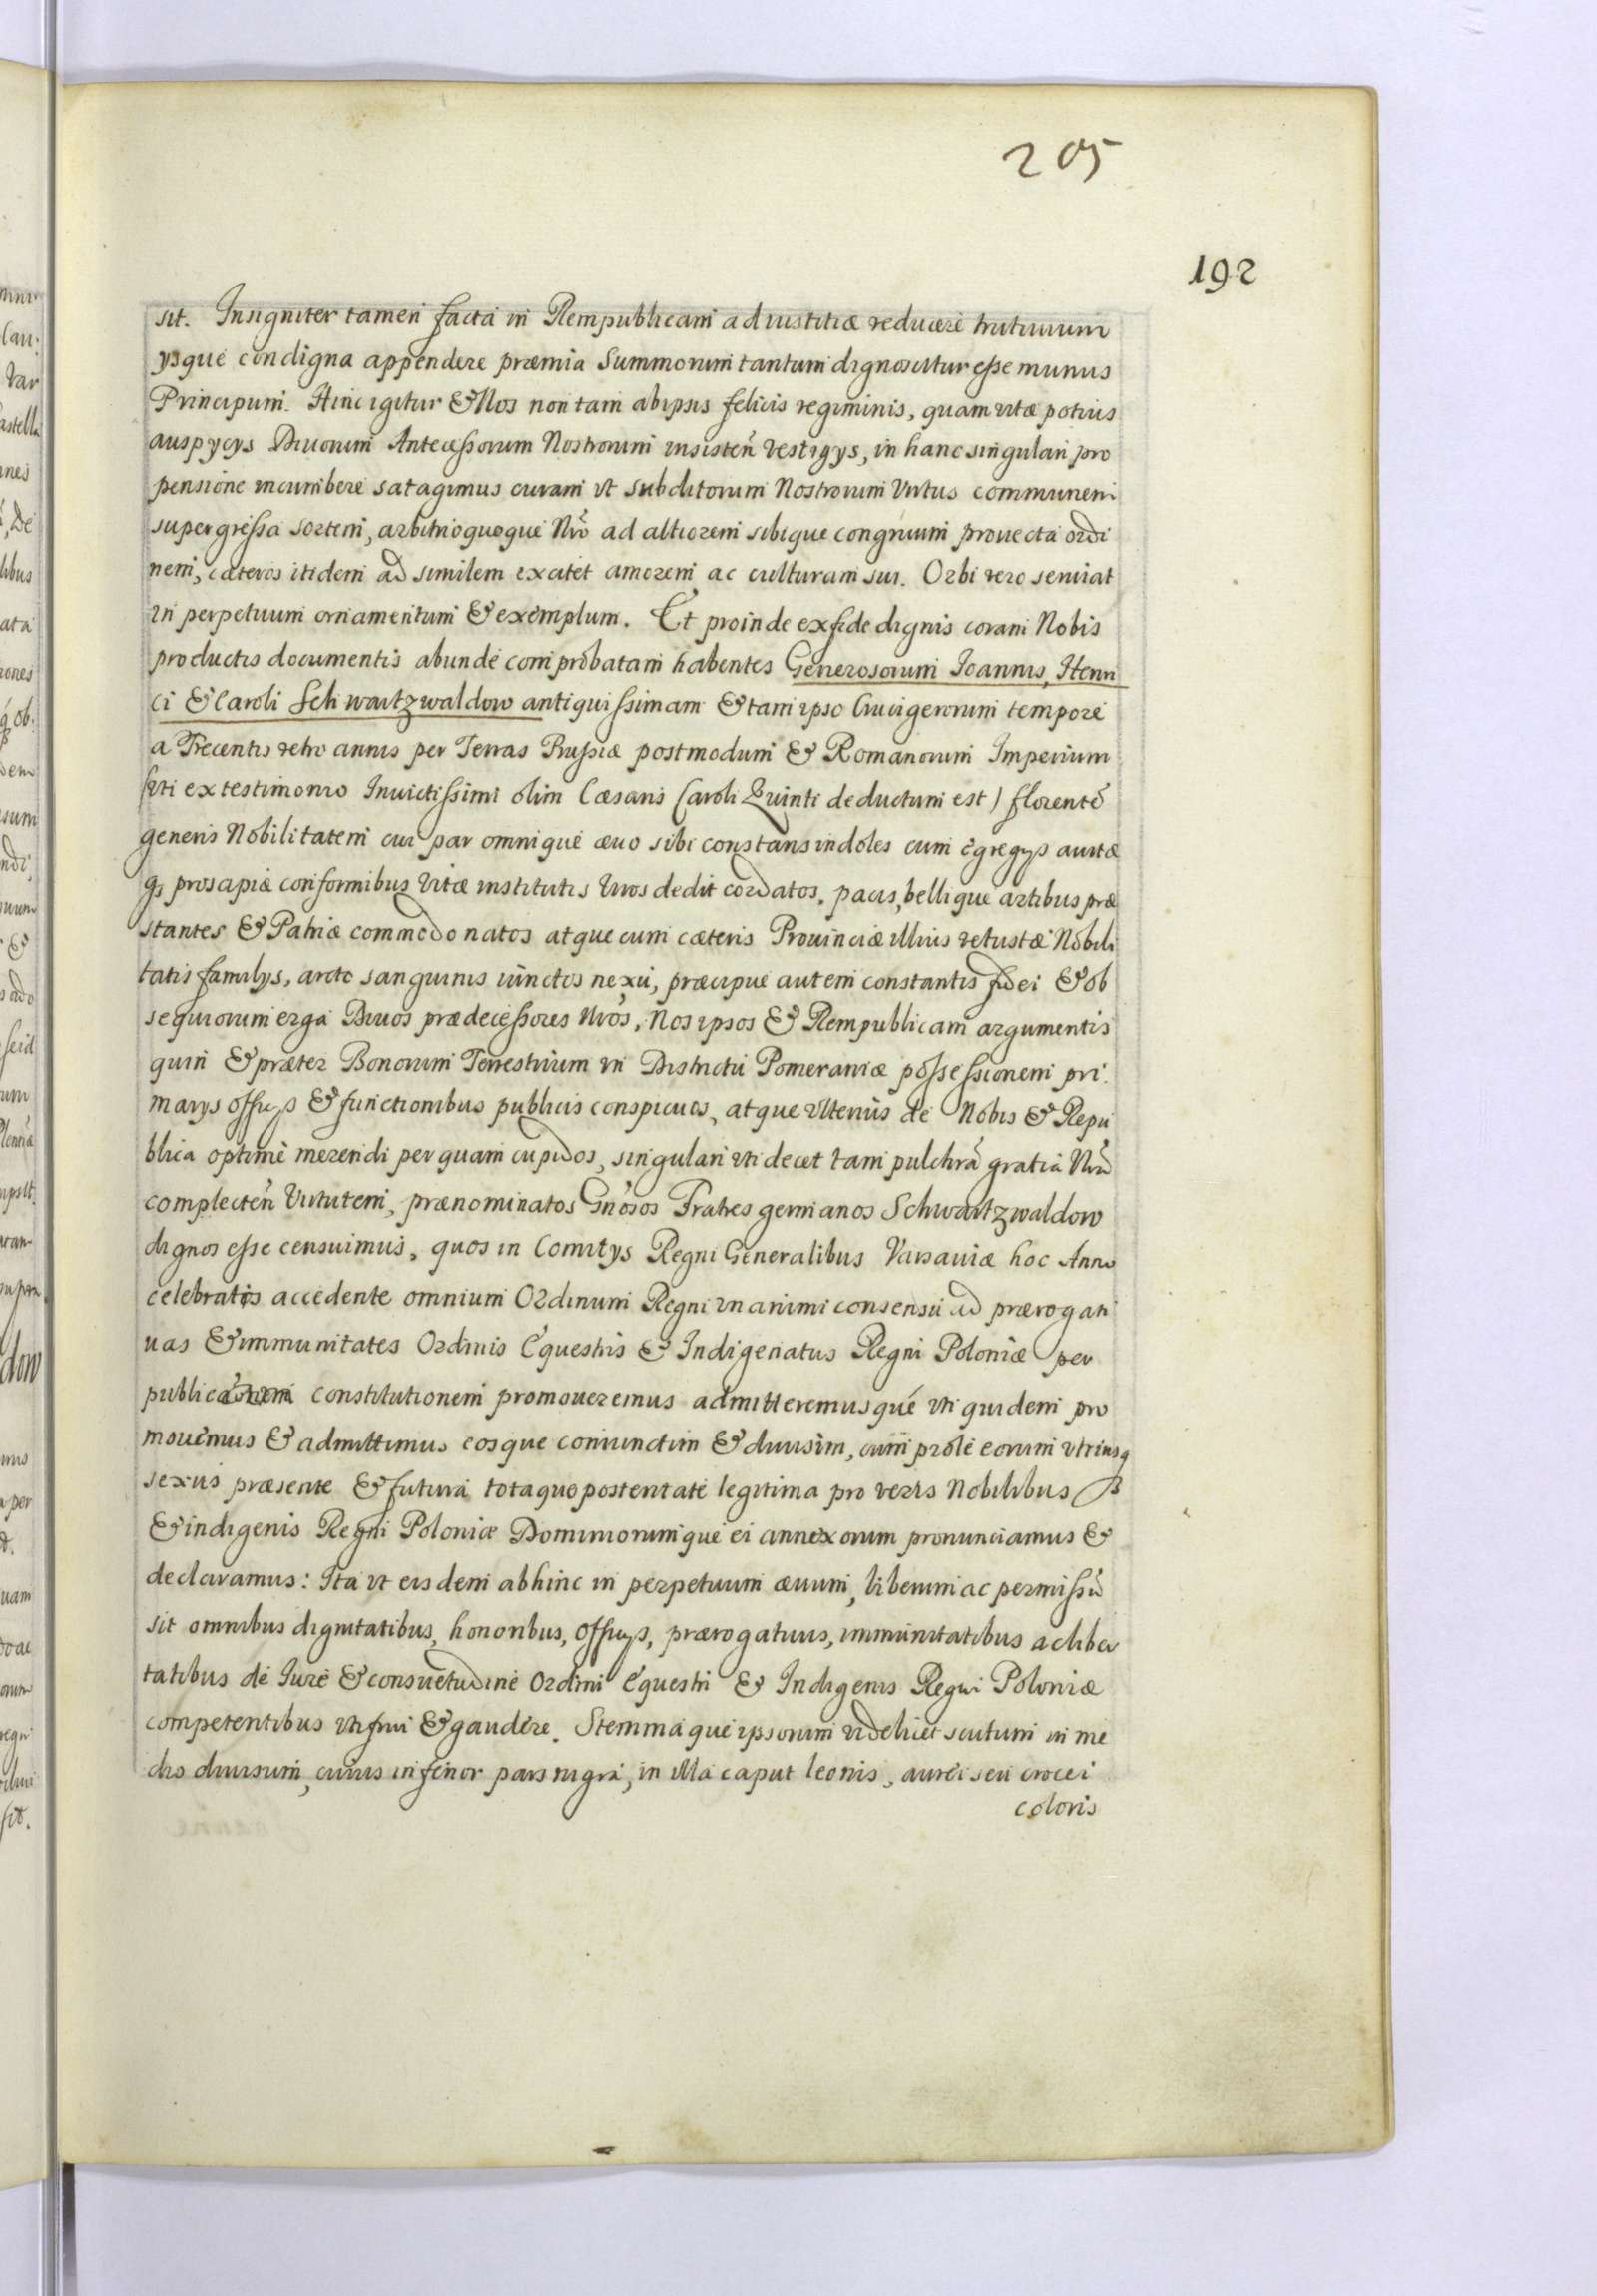 205
192
sit. Insigniter tamen facta in Rempublicam ad iustitiæ reducere trutinam
ysque condigna appendere præmia Summorum tantum dignoscitur esse munus
Principum. Hinc igitur & Nos non tam ab ipsis felicis regiminis, quam vitæ potius
auspycys Diuorum Antecessorum Nostrorum insisteñ vestigys, in hanc singulari pro
pensione incumbere satagimus curam vt subditorum Nostrorum Virtus communem
supergressa sortem, arbitrio quoque Nrõ ad altiorem sibique congruum prouecta ordi
nem, cæteros itidem ad similem excitet amorem ac culturam sui. Orbi vero seruiat
in perpetuum ornamentum & exemplum. Et proinde ex fide dignis coram Nobis
productis documentis abunde comprobatam habentes Generosorum Ioannis, Henri
ci & Caroli Schwartzwaldow antiquissimam & tam ipso Crucigerorum tempore
a Trecentis retro annis per Terras Prussiæ postmodum & Romanorum Imperium
(vti ex testimonio Inuictissimi olim Cæsaris Caroli Quinti deductum est) florentẽ
generis Nobilitatem cui par omnique æuo sibi constans indoles cum egregys auitæ
q; prosapiæ conformibus vitæ institutis Viros dedit cordatos, pacis, bellique artibus præ
stantes & Patriæ commodo natos atque cum cæteris Prouinciæ illius vetustæ Nobili
tatis familys, arcto sanguinis iunctos nexu, præcipue autem constantis fidei & ob
sequiorum erga Diuos prædecessores Nrõs, Nos ipsos & Rempublicam argumentis
quin & præter Bonorum Terrestrium in Districtu Pomeraniæ possessionem pri
marys offycys & functionibus publicis conspicuos, atque vlterius de Nobis & Repu
blica optime merendi perquam cupidos, singulari vti decet tam pulchrã gratia Nrã
complecteñ Virtutem, prænominatos Gnõsos Fratres germanos Schwartzwaldow
dignos esse censuimus, quos in Comitys Regni Generalibus Varsauiæ hoc Anno
celebratis accedente omnium Ordinum Regni vnanimi consensu ad prærogati
uas & immunitates Ordinis Equestris & Indigenatus Regni Poloniæ per
publicam constitutionem promoueremus admitteremusque vti quidem pro
mouemus & admittimus eosque coniunctim & diuisim, cum prole eorum vtriusq
sexus præsente & futura totaque posteritate legitima pro veris Nobilibus
& indigenis Regni Poloniæ Dominiorumque ei annexorum pronunciamus &
declaramus: Ita vt eisdem abhinc in perpetuum æuum, liberum ac permissũ
sit omnibus dignitatibus, honoribus, offycys, prærogatiuis, immunitatibus ac liber
tatibus de Iure & consuetudine Ordini Equestri & Indigenis Regni Poloniæ
competentibus vti frui & gaudere. Stemmaque ipsorum videlicet scutum in me
dio diuisum, cuius inferior pars nigra, in illa caput leonis, aurei seu crocei
coloris